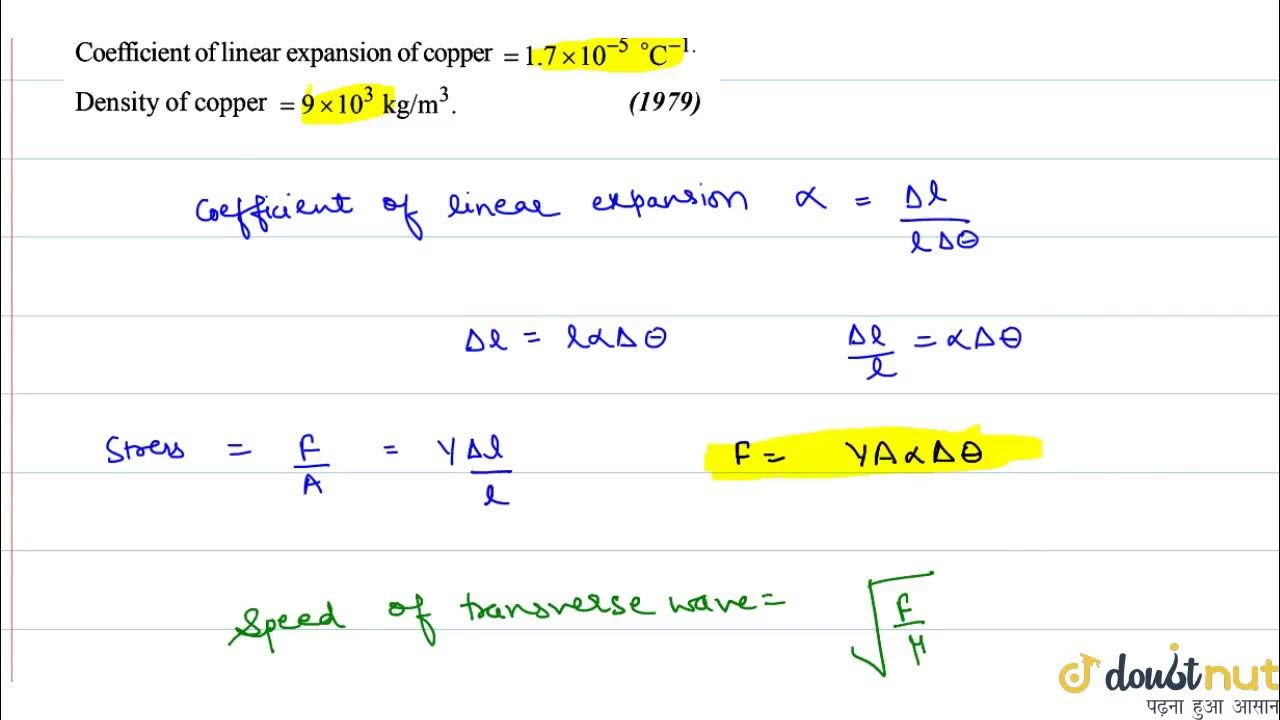 Coefficient of linear expansion of copper = 1.7×10⁻⁵ °C⁻¹.
Density of copper = 9×10³ kg/m³. (1979)
Coefficient of linear expansion α = Δl / lΔθ
Δl = lαΔθ Δl/l = αΔθ
Stress = F/A = YΔl/l F = YAαΔθ
Speed of transverse wave = √(F/μ)
doubtnut
पढ़ना हुआ आसान